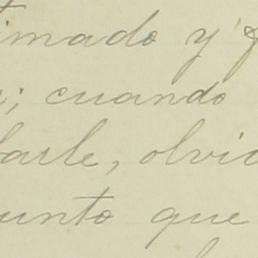 timado y
; cuando
darle, olvid
unto que